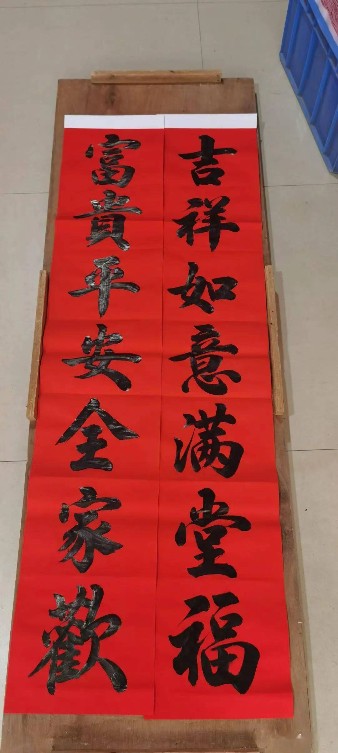 吉祥如意满堂福
富貴平安全家歡